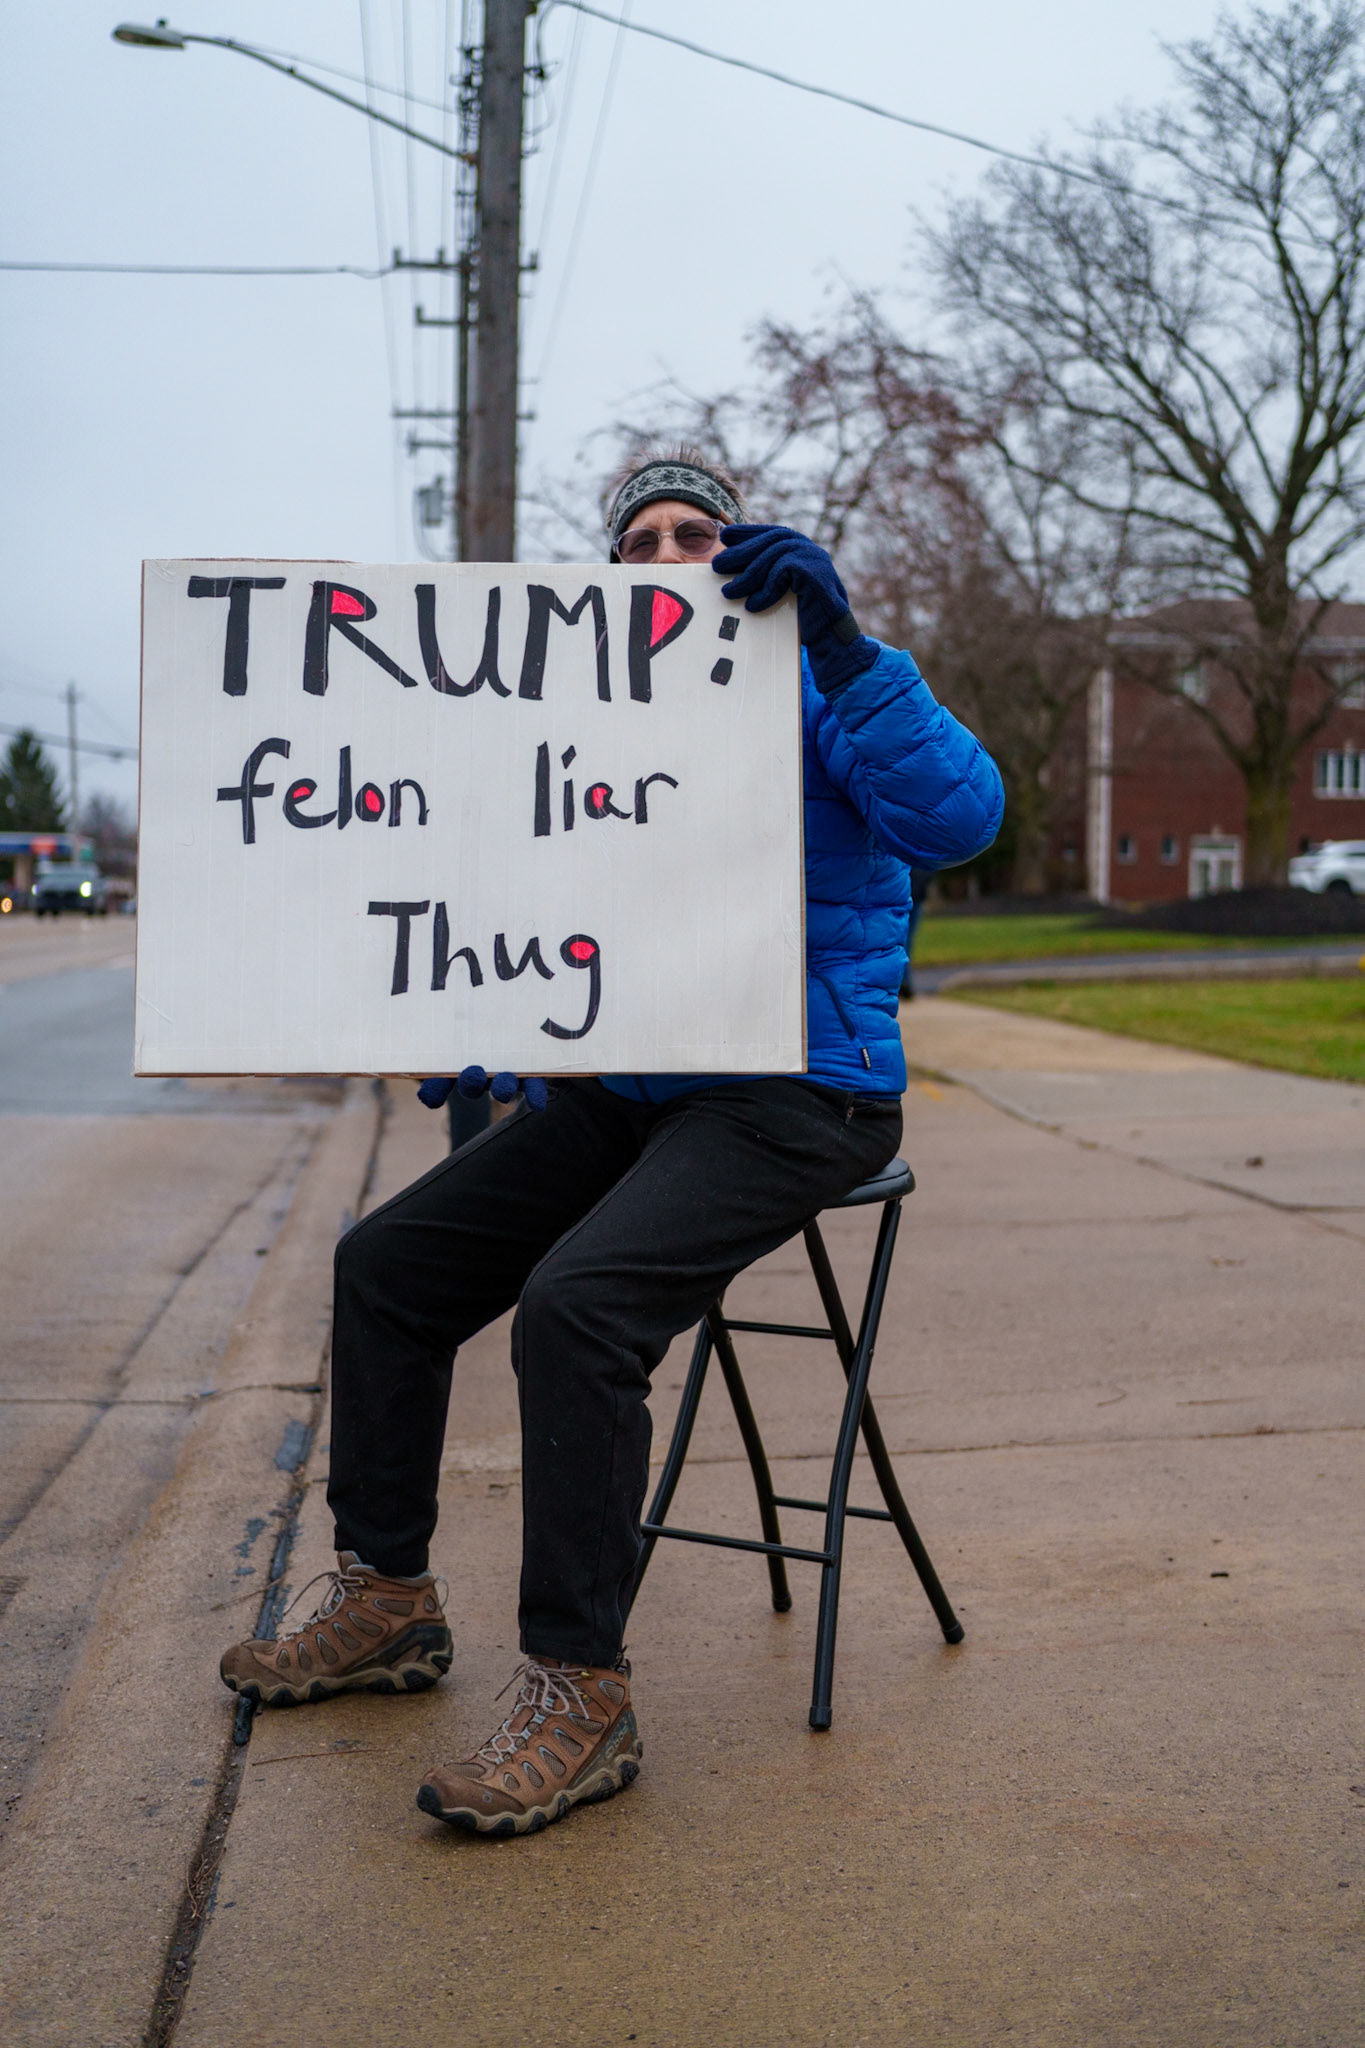 TRUMP:
felon liar
Thug